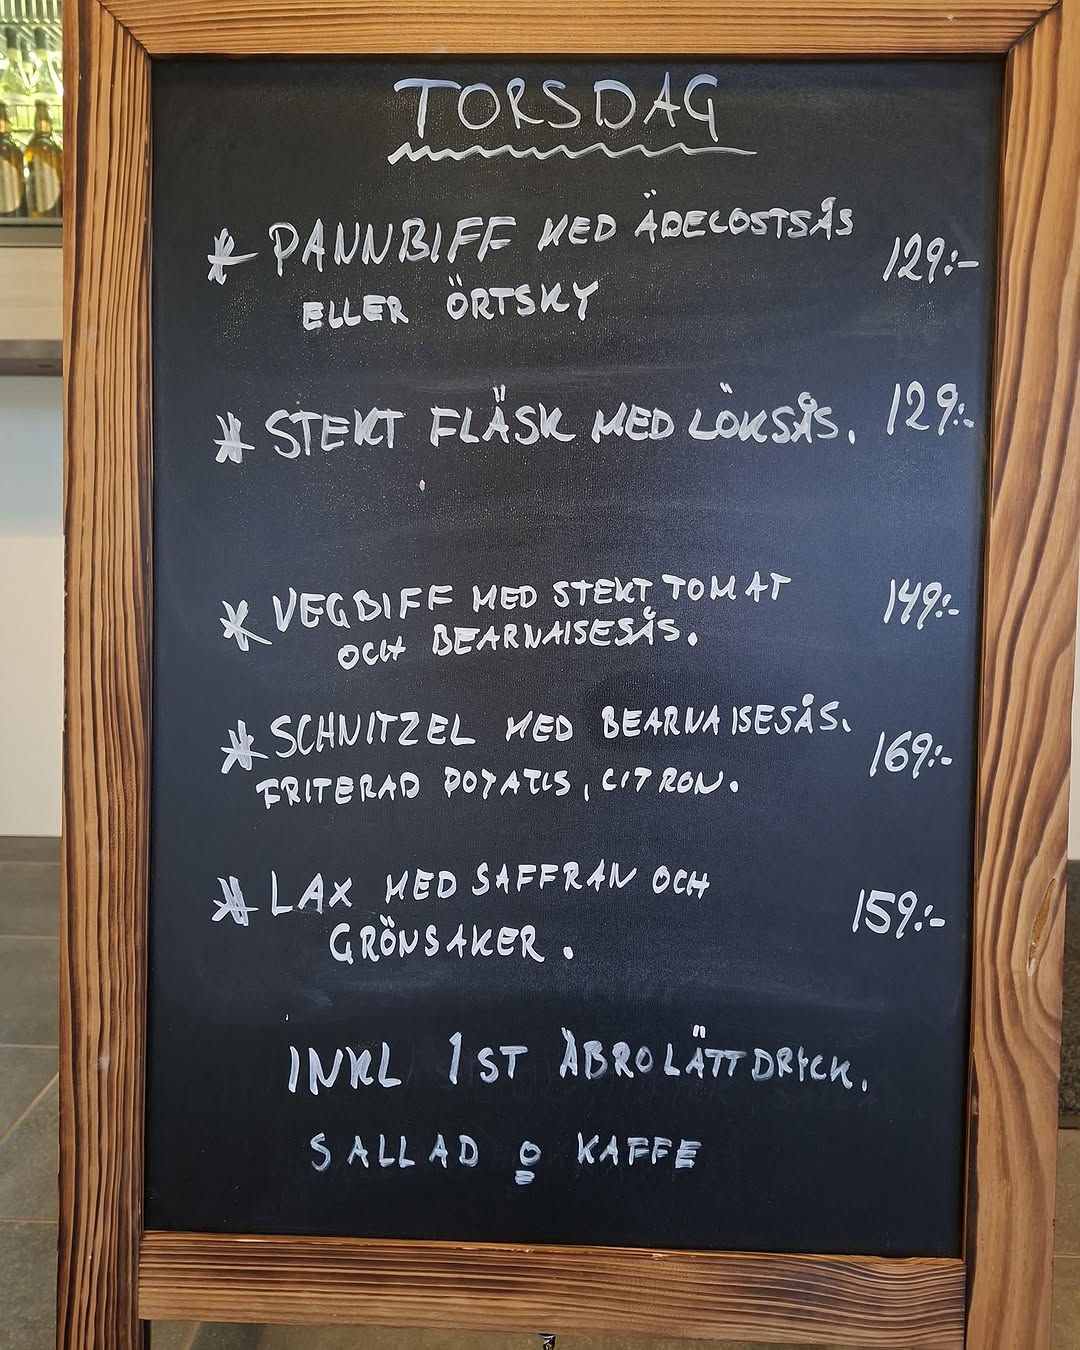 TORSDAG
* PANNBIFF MED ÄDELOSTSÅS 129:-
ELLER ÖRTSKY
* STEKT FLÄSK MED LÖKSÅS. 129:-
* VEGBIFF MED STEKT TOMAT 149:-
OCH BEARNAISESÅS.
* SCHNITZEL MED BEARNAISESÅS. 169:-
FRITERAD POTATIS, CITRON.
* LAX MED SAFFRAN OCH 159:-
GRÖNSAKER.
INKL 1 ST ÅBRO LÄTTDRYCK.
SALLAD o KAFFE